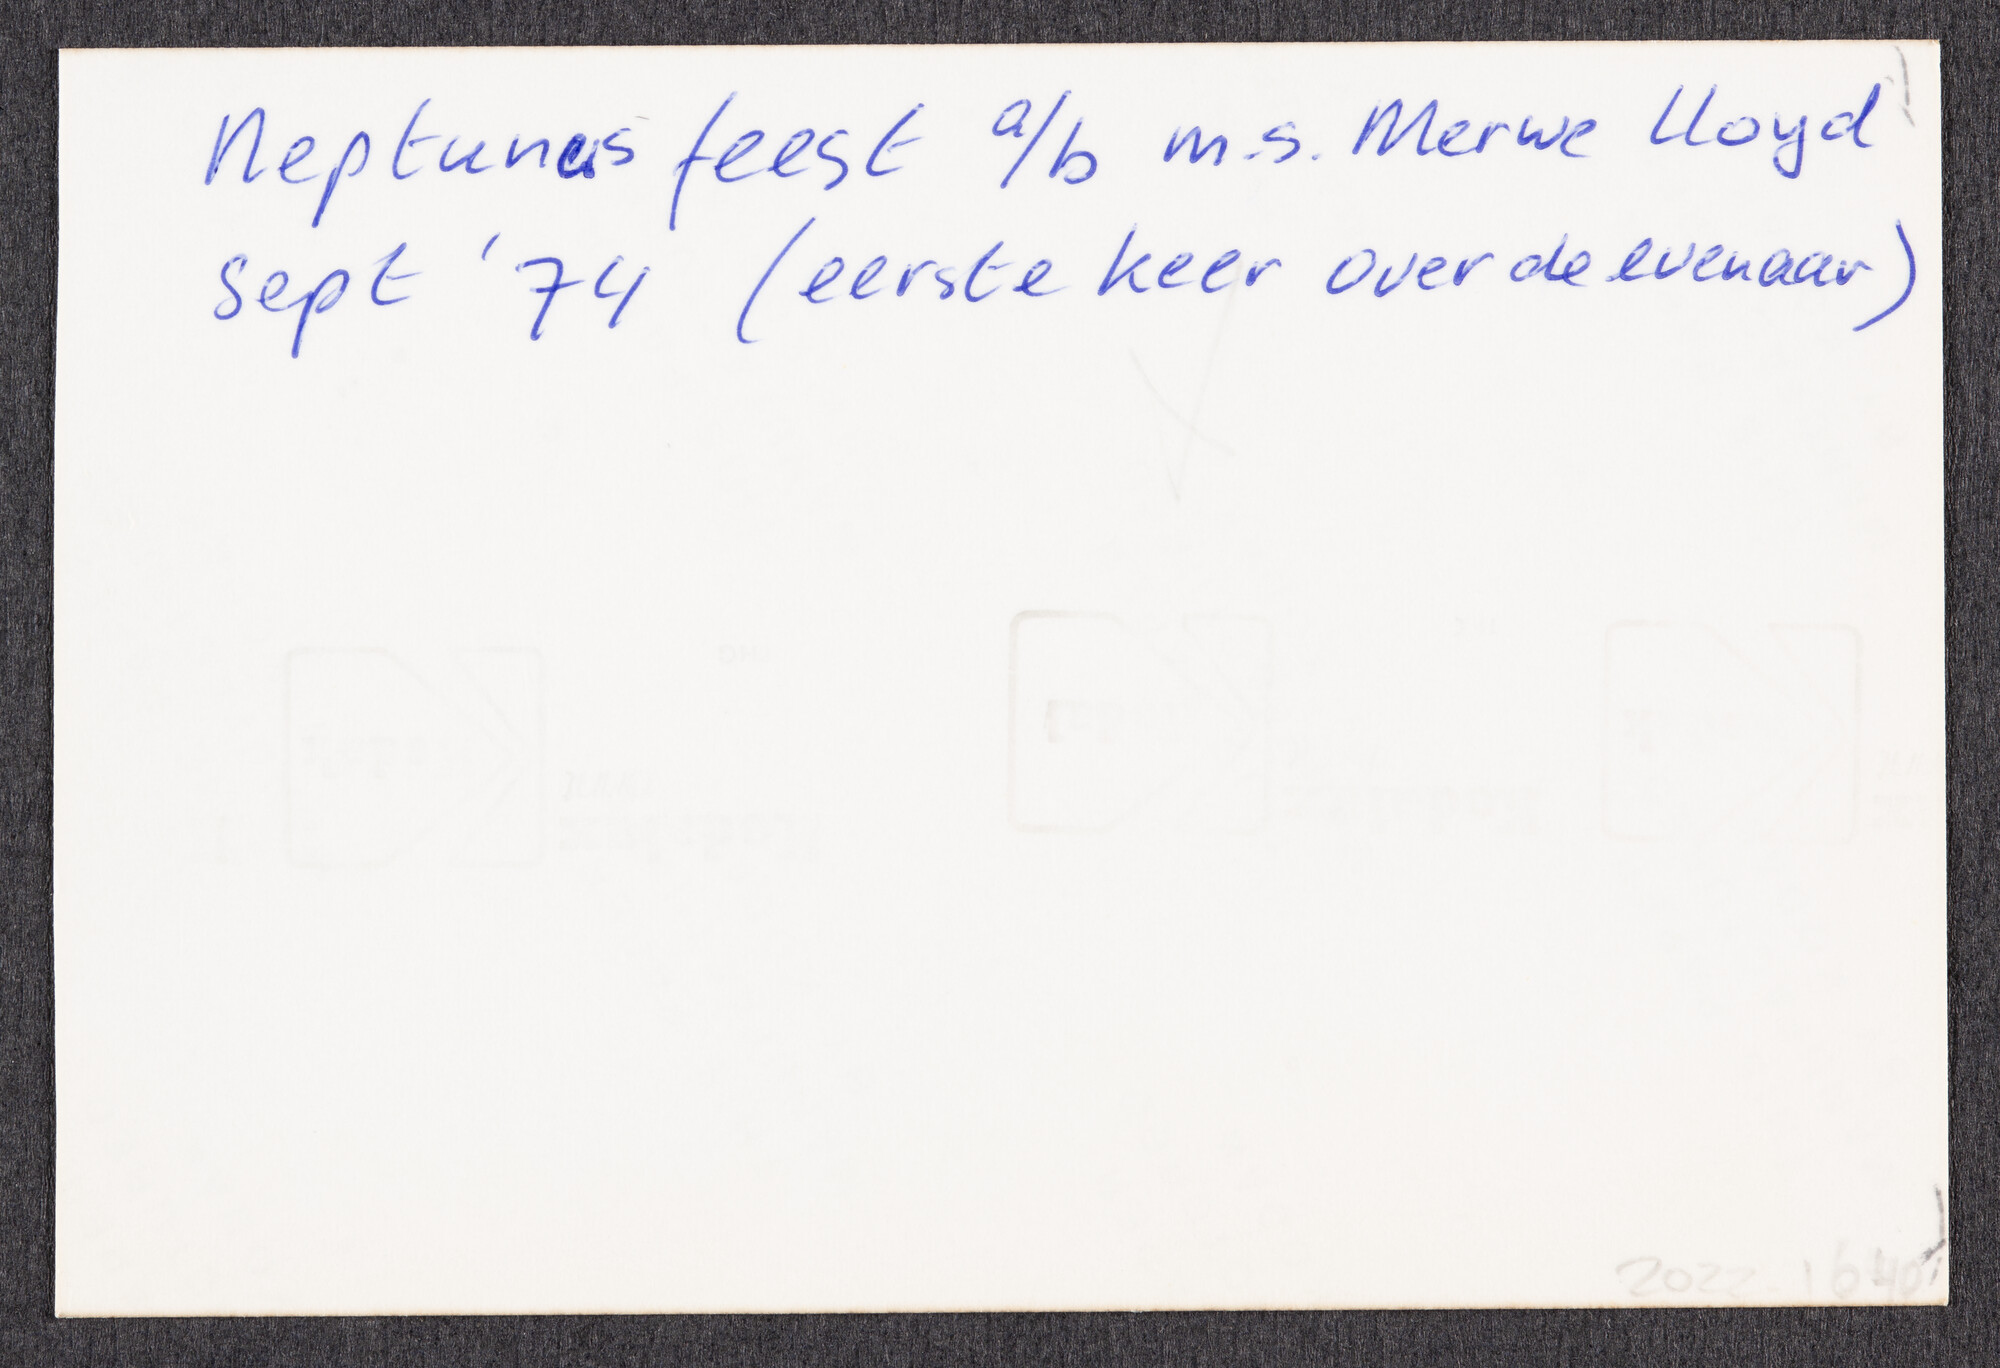 Neptunus feest a/b m.s. Merwe Lloyd
Sept '74 (eerste keer over de evenaar)